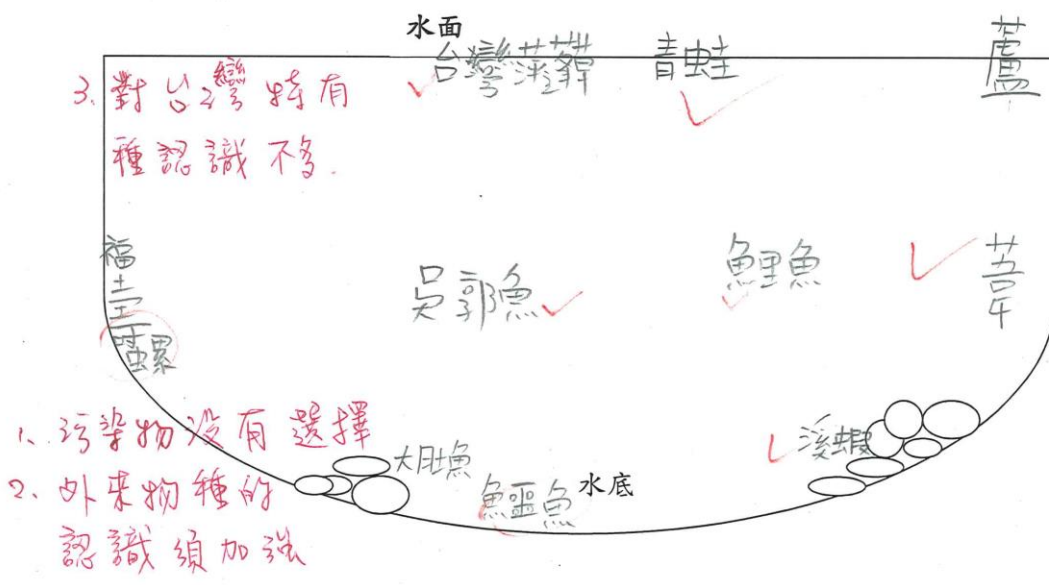 水面
台灣萍蓬草
青蛙
蘆葦
3. 對台灣特有
種認識不多.
福壽螺
吳郭魚
鯉魚
1、污染物沒有選擇
2、外來物種的
認識須加強
大肚魚
鱷魚
水底
溪蝦